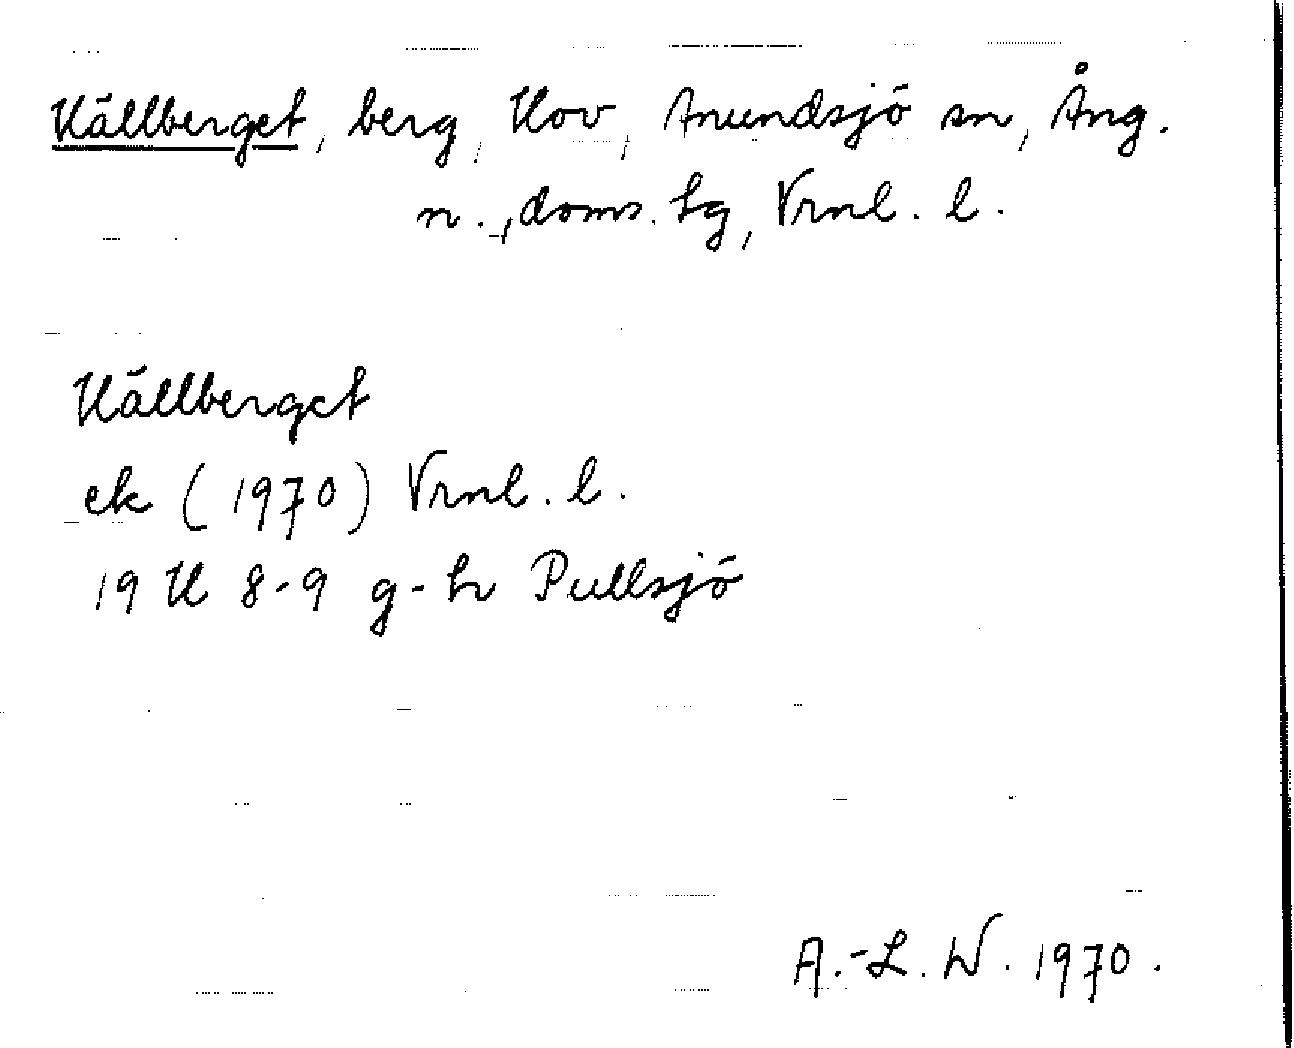 Hällberget, berg, Hov, Anundsjö sn, Ång.
n., doms. tg, Vrnl. l.
Hällberget
ek (1970) Vrnl. l.
19 H 8-9 g-h Pullsjö
A.-L. W. 1970.